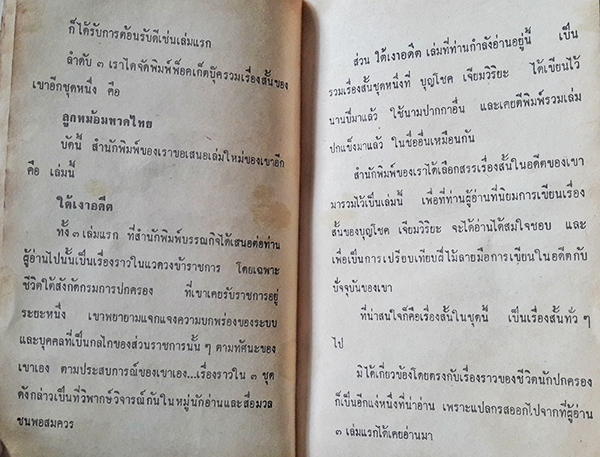 ก็ได้รับการต้อนรับดีเช่นเล่มแรก
ลำดับ ๓ เราได้จัดพิมพ์พ็อคเก็ตบุ๊ครวมเรื่องสั้นของ
เขาอีกชุดหนึ่ง คือ
ลูกหม้อมหาดไทย
บัดนี้ สำนักพิมพ์ของเราขอเสนอเล่มใหม่ของเขาอีก
คือ เล่มนี้
ใต้เงาอดีต
ทั้ง ๓ เล่มแรก ที่สำนักพิมพ์บรรณกิจได้เสนอต่อท่าน
ผู้อ่านไปนั้นเป็นเรื่องราวในแวดวงข้าราชการ โดยเฉพาะ
ชีวิตใต้สังกัดกรมการปกครอง ที่เขาเคยรับราชการอยู่
ระยะหนึ่ง เขาพยายามแจกแจงความบกพร่องของระบบ
และบุคคลที่เป็นกลไกของส่วนราชการนั้น ๆ ตามทัศนะของ
เขาเอง ตามประสบการณ์ของเขาเอง...เรื่องราวใน ๓ ชุด
ดังกล่าวเป็นที่วิพากษ์วิจารณ์กันในหมู่นักอ่านและสื่อมวล
ชนพอสมควร
ส่วน ใต้เงาอดีต เล่มที่ท่านกำลังอ่านอยู่นี้ เป็น
รวมเรื่องสั้นชุดหนึ่งที่ บุญโชค เจียมวิริยะ ได้เขียนไว้
นานปีมาแล้ว ใช้นามปากกาอื่น และเคยตีพิมพ์รวมเล่ม
ปกแข็งมาแล้ว ในชื่ออื่นเหมือนกัน
สำนักพิมพ์ของเราได้เลือกสรรเรื่องสั้นในอดีตของเขา
มารวมไว้เป็นเล่มนี้ เพื่อที่ท่านผู้อ่านที่นิยมการเขียนเรื่อง
สั้นของบุญโชค เจียมวิริยะ จะได้อ่านได้สมใจชอบ และ
เพื่อเป็นการเปรียบเทียบฝีไม้ลายมือการเขียนในอดีตกับ
ปัจจุบันของเขา
ที่น่าสนใจก็คือเรื่องสั้นในชุดนี้ เป็นเรื่องสั้นทั่ว ๆ
ไป
มิได้เกี่ยวข้องโดยตรงกับเรื่องราวของชีวิตนักปกครอง
ก็เป็นอีกแง่หนึ่งที่น่าอ่าน เพราะแปลกรสออกไปจากที่ผู้อ่าน
๓ เล่มแรกได้เคยอ่านมา